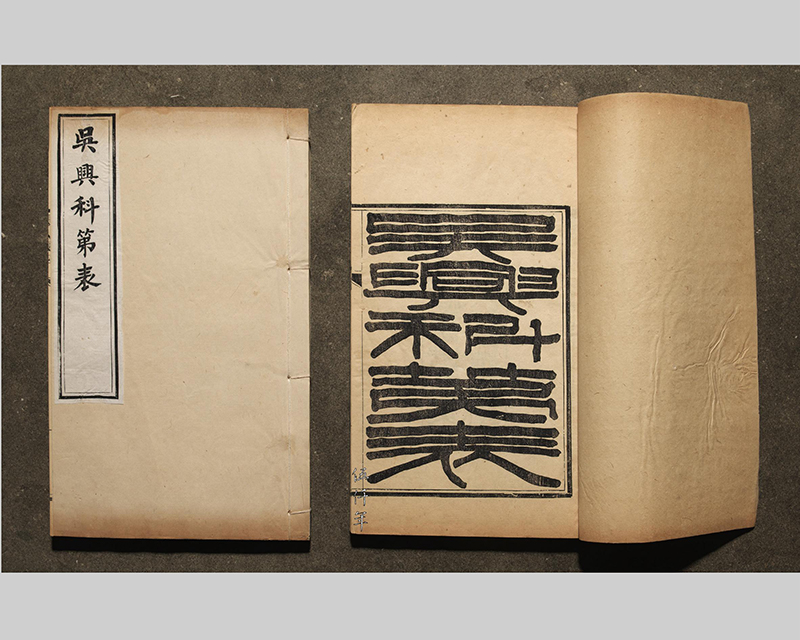 吳興科第表
吳興科第表